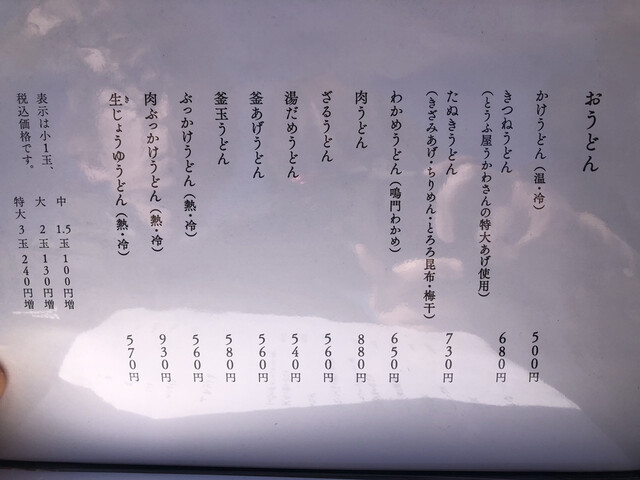 おうどん
かけうどん（温・冷） 500円
きつねうどん 680円
（とうふ屋うかわさんの特大あげ使用）
たぬきうどん 730円
（きざみあげ・ちりめん・とろろ昆布・梅干）
わかめうどん（鳴門わかめ） 650円
肉うどん 880円
ざるうどん 560円
湯だめうどん 540円
釜あげうどん 560円
釜玉うどん 580円
ぶっかけうどん（熱・冷） 560円
肉ぶっかけうどん（熱・冷） 930円
生じょうゆうどん（熱・冷） 570円
き
表示は小1玉、
税込価格です。
中 1.5玉 100円増
大 2玉 130円増
特大 3玉 240円増